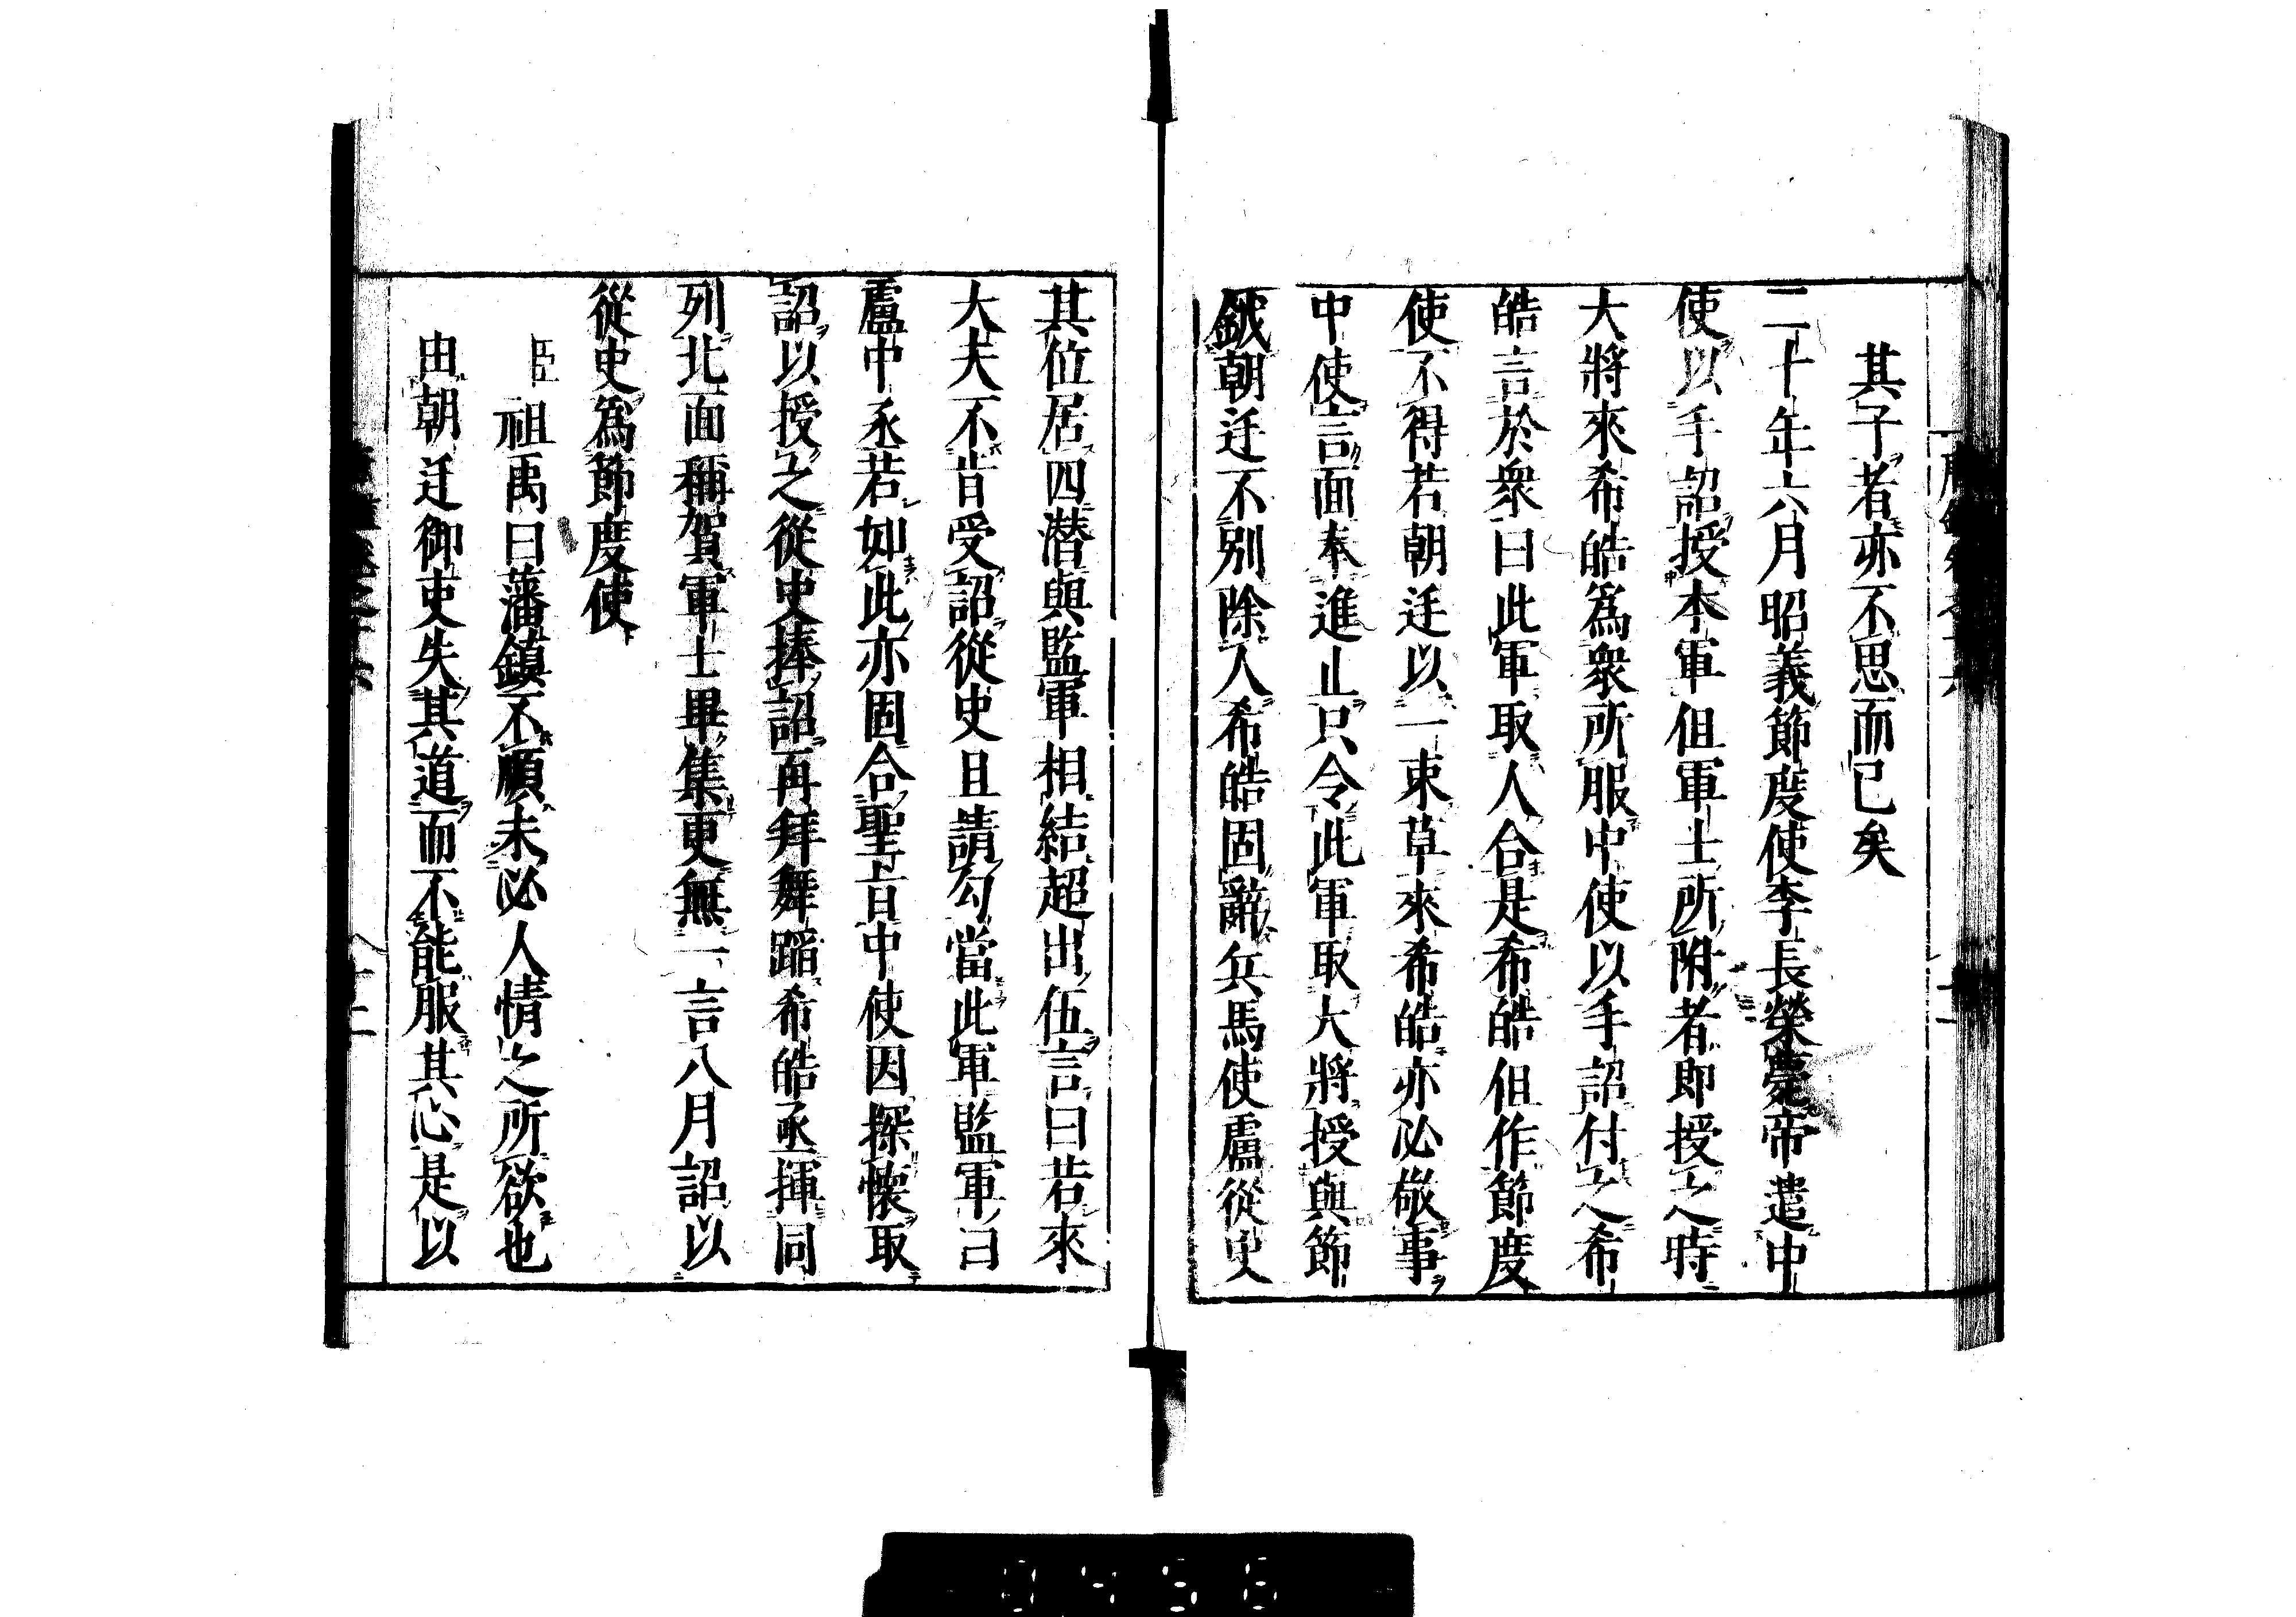 其子者亦不思而已矣
二十年六月昭義節度使李長榮薨帝遣中
使以手詔授本軍但軍士所附者即授之時
大將來希皓爲衆所服中使以手詔付之希
皓言於衆曰此軍取人合是希皓但作節度
使不得若朝廷以一束草來希皓亦必敬事
中使言面奉進止只令此軍取大將授與節
鉞朝廷不別除人希皓固辭兵馬使盧從史
其位居四潜與監軍相結超出伍言曰若來
大夫不肯受詔從史且請勾當此軍監軍曰
盧中丞若如此亦固合聖旨中使因探懷取
詔以授之從史捧詔再拜舞蹈希皓亟揮同
列北面稱賀軍士畢集更無一言八月詔以
從史爲節度使
臣祖禹曰藩鎮不順未必人情之所欲也
由朝廷御吏失其道而不能服其心是以